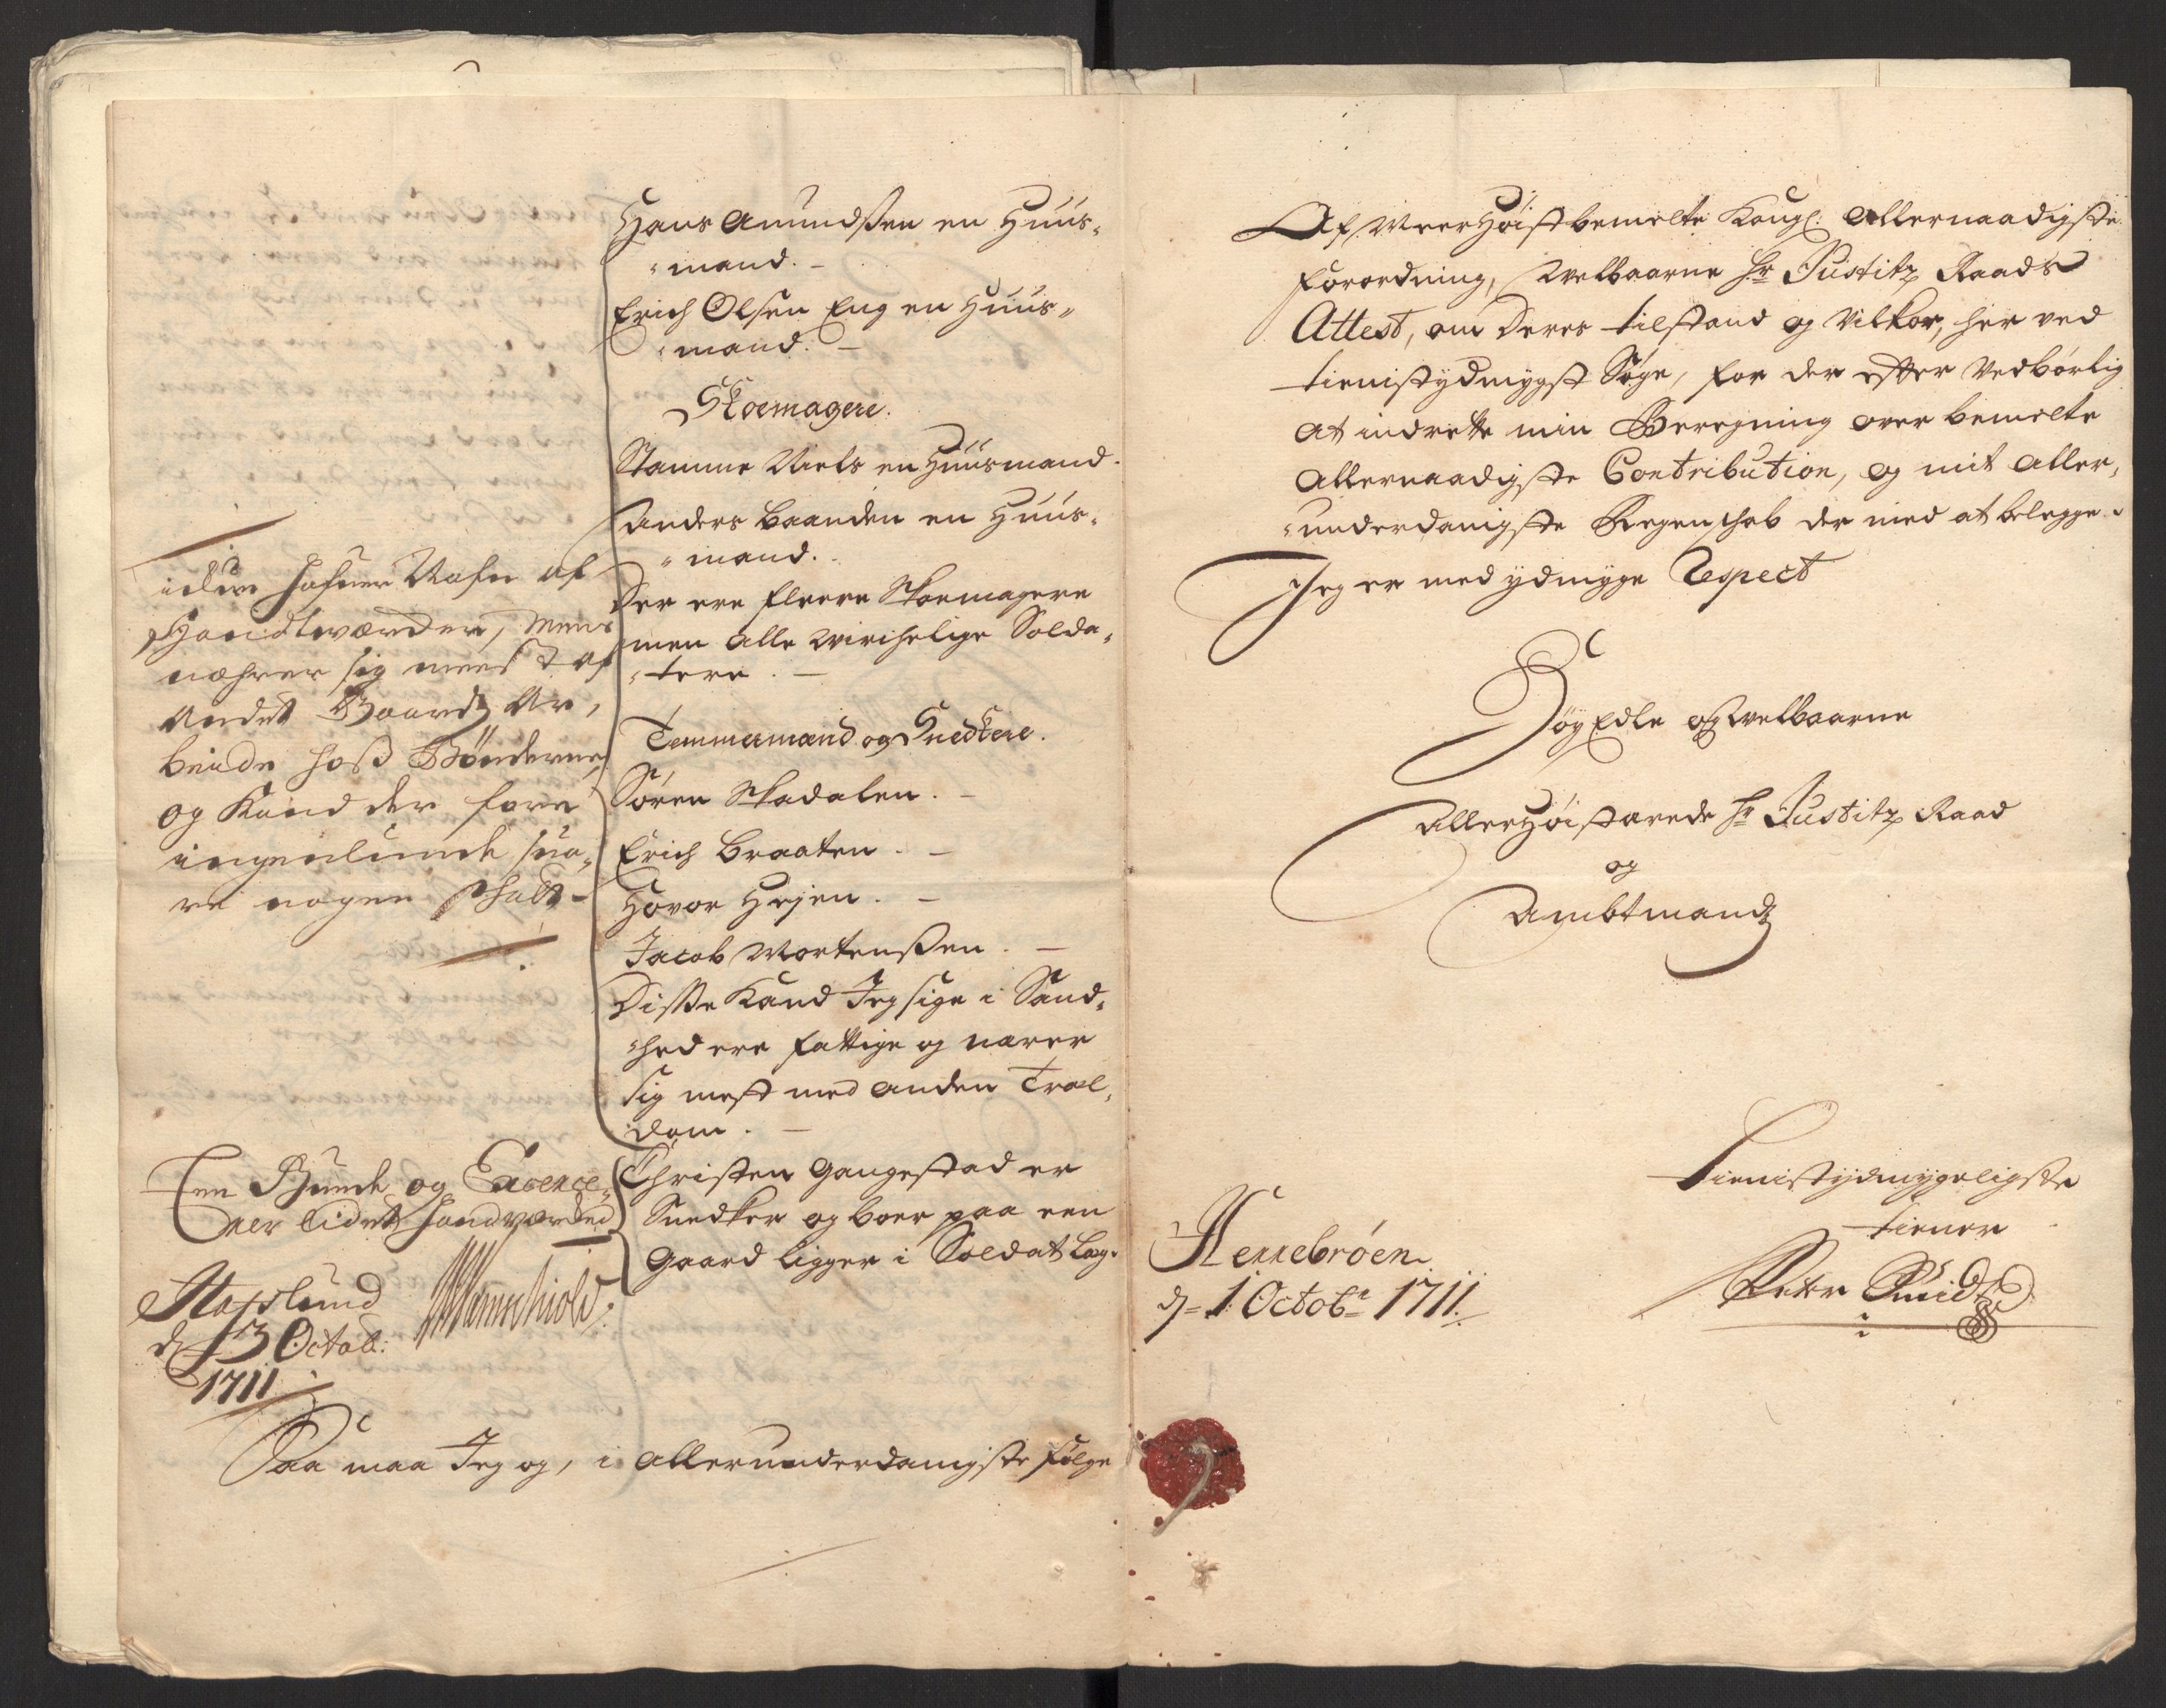 Hans Amundsen en Huus-
mand.
Erich Olsen Eng en Huus-
mand.
Skoemagere.
Stamme Niels en Huusmand.
Anders Baanden en Huus-
mand.
Der ere fleere Skoemagere
men alle Wirchelige Solda-
tere.
Temmermænd og Snedkere.
Søren Skadalen.
Erich Braaten.
Hovor Hejen.
Jacob Mortensen.
Disse Kand Jeg sige i Sand-
hed ere fattige og nærer
sig mest med anden Træl-
dom.
Christen Gangestad er
Snedker og boer paa een
Gaard ligger i Soldat Læg.
hafuer Nafn af
Handtwærcker, mens
næhrer sig meest af
Andet Gaardtz Ar-
beide hoss Bønderne
og Kand der fore
ingenlunde sua-
re nogen Skatt
Een Bunde og Exerce-
rer lidet Handværcked
Hafslund
d 13 Octob:
1711
Saa maa Jeg og, i allerunderdanigste følge
Af Meer Høistbemelte Kongl: Allernaadigste
forordning, Welbaarne Hr Justitz Raads
Attest, om Deres tilstand og Vilkor, her ved
tienistydmygst Søge, for der efter Vedbørlig
at indrette min Beregning over bemelte
Allernaadigste Contribution, og mit aller-
underdanigste Regenskab der med at belegge.
Jeg er med ydmyge Respect
Høy Edle og Welbaarne
AllerHøistærede Hr Justitz Raad
og
Ambtmandz
Tienistydmygeligste
tiener
Hennebrøen
d= 1 Octobr 1711.
Peter Smidt